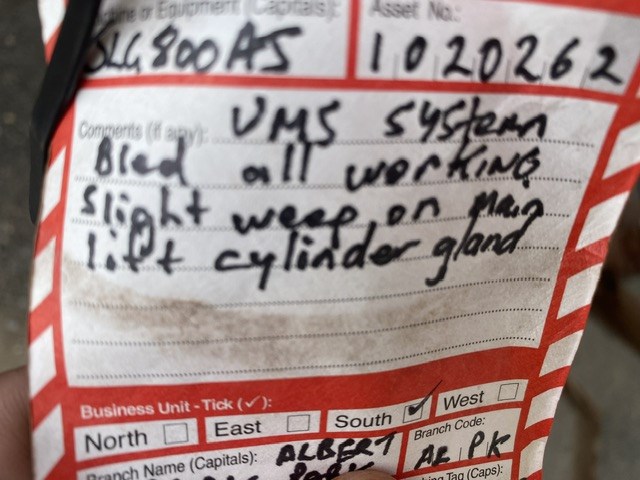 or Equipment (Capitals):
Asset No.:
SLG800AJ
1020262
Comments (if any): VMS system
Bled all working
slight weep on main
lift cylinder gland
Business Unit - Tick (✓):
North East South ✓ West
Branch Name (Capitals): ALBERT
Branch Code:
AL PK
Tag (Caps):